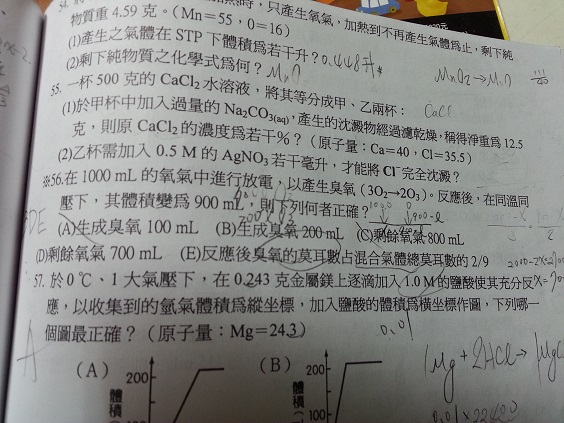 熱時，只產生氧氣，加熱到不再產生氣體為止，剩下純
物質重 4.59 克。(Mn＝55，O＝16)
(1)產生之氣體在 STP 下體積為若干升？0.448升
(2)剩下純物質之化學式為何？ MnO MnO₂→MnO
55. 一杯 500 克的 CaCl₂ 水溶液，將其等分成甲、乙兩杯： CaCl
(1)於甲杯中加入過量的 Na₂CO₃(aq)，產生的沈澱物經過濾乾燥，稱得淨重為 12.5
克，則原 CaCl₂ 的濃度為若干%？(原子量：Ca＝40，Cl＝35.5)
(2)乙杯需加入 0.5 M 的 AgNO₃ 若干毫升，才能將 Cl⁻ 完全沈澱？
※56.在 1000 mL 的氧氣中進行放電，以產生臭氧(3O₂→2O₃)。反應後，在同溫同
壓下，其體積變為 900 mL，則下列何者正確？
DE (A)生成臭氧 100 mL (B)生成臭氧 200 mL (C)剩餘氧氣 800 mL
(D)剩餘氧氣 700 mL (E)反應後臭氧的莫耳數占混合氣體總莫耳數的 2/9
57. 於 0℃、1 大氣壓下，在 0.243 克金屬鎂上逐滴加入 1.0 M 的鹽酸使其充分反
應，以收集到的氫氣體積為縱坐標，加入鹽酸的體積為橫坐標作圖，下列哪一
個圖最正確？(原子量：Mg＝24.3) 0.01
A Mg + 2HCl→ MgCl
(A) (B)
200 200
體積 體積
100 100
0.01×22400